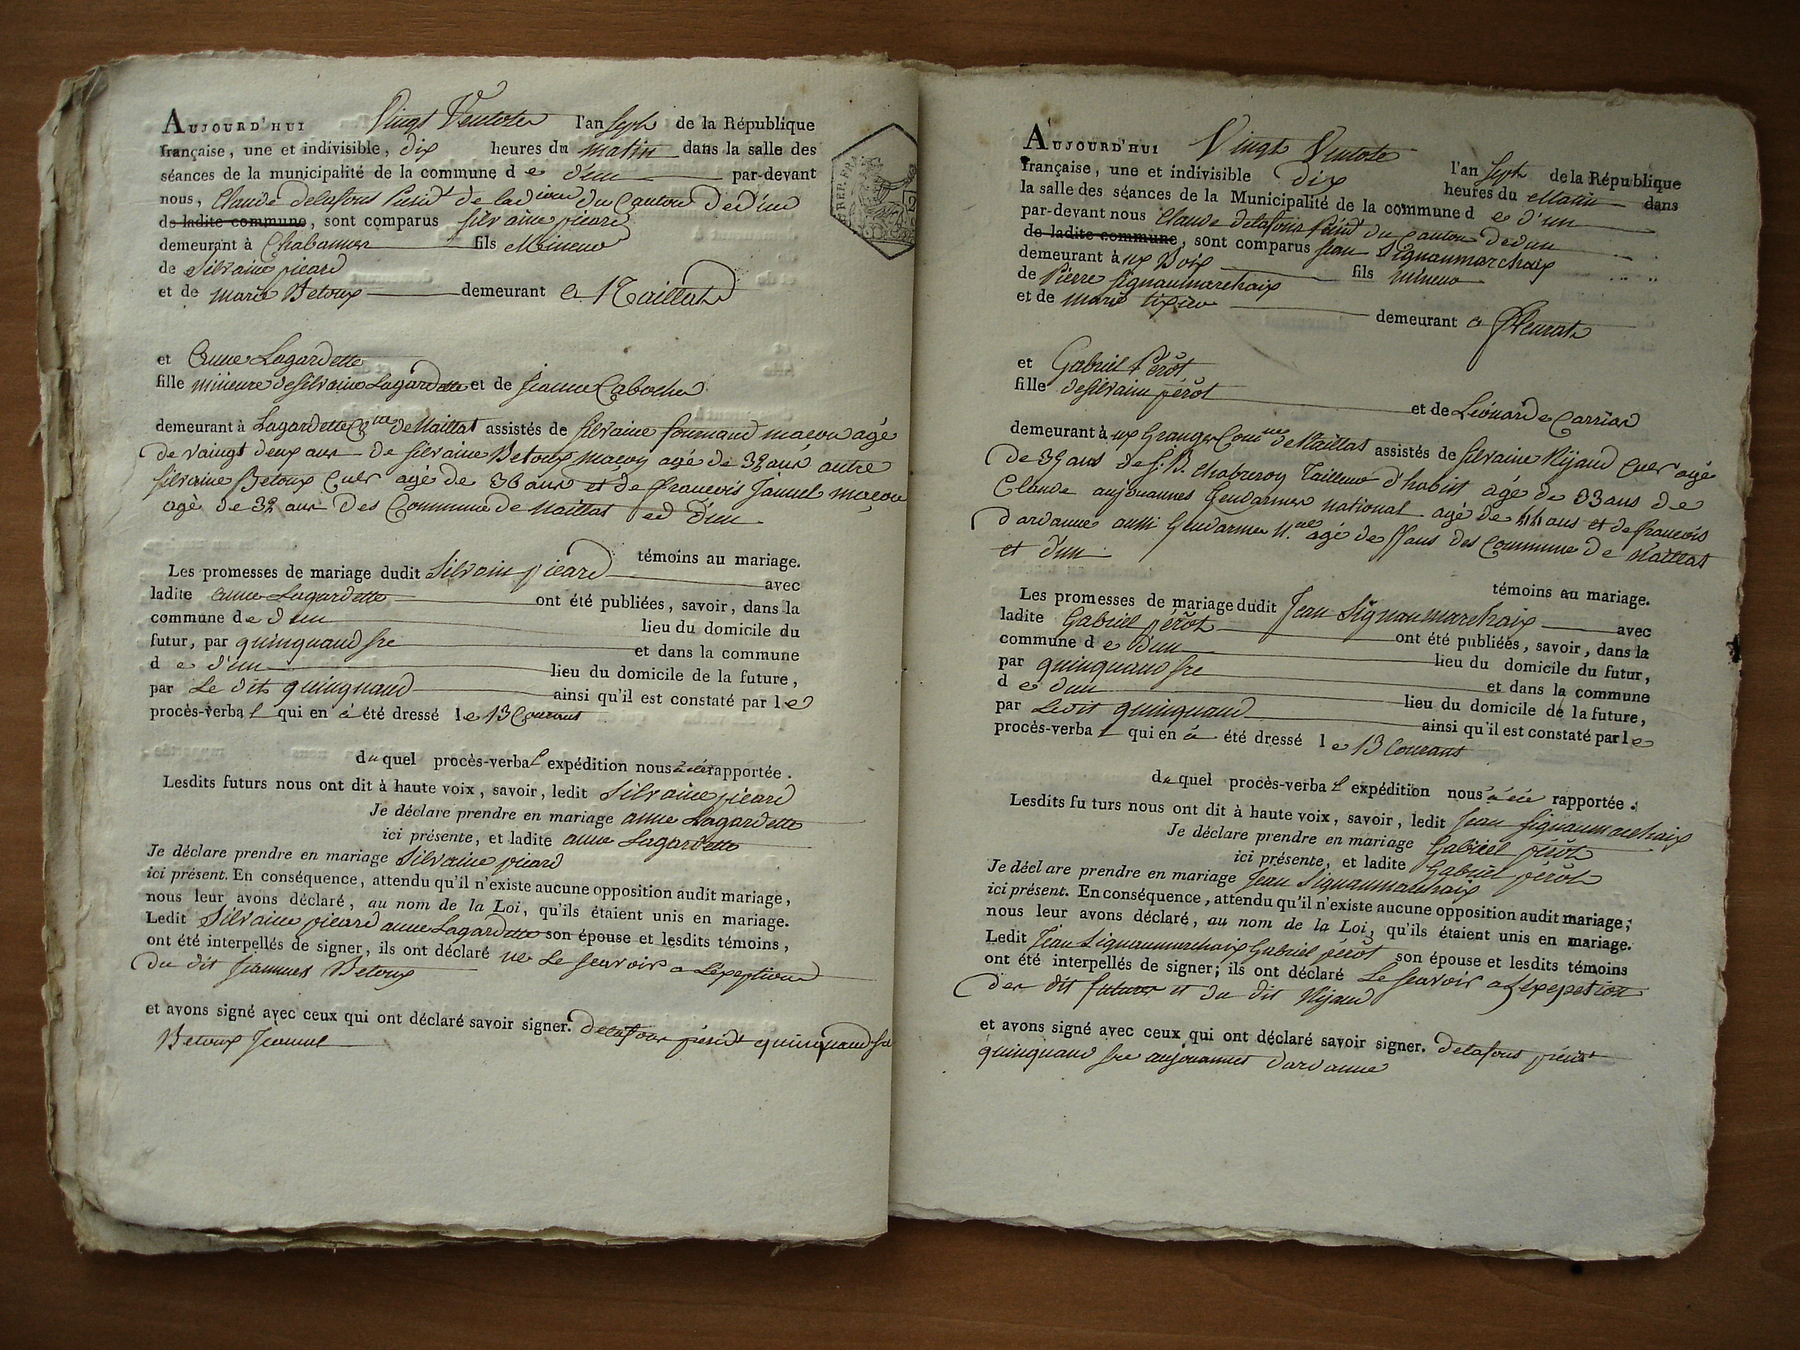 AUJOURD'HUI Vingt Ventose l'an Sept de la République
française, une et indivisible, dix heures du matin dans la salle des
séances de la municipalité de la commune de d'un par-devant
nous, Claude delafous Présidt de du Canton de d'un
de ladite commune, sont comparus Silvaine picard
demeurant à Chabannes fils Mineur
de Silvaine picard
et de marie Betoux demeurant a Naillat
et Anne Lagardette
fille mineure de Silvaine Lagardette et de Jeanne Caboche
demeurant à Lagardette Cne de Naillat assistés de Silvaine fournaud maçon agé
de vaingt deux ans de Silvaine Betoux maçon agé de 32 ans autre
Silvaine Betoux Cuer agé de 36 ans et de francois Jannel maçon
agé de 32 ans Des Commune de Naillat et d'un
témoins au mariage.
Les promesses de mariage dudit Silvain picard avec
ladite anne Lagardette ont été publiées, savoir, dans la
commune de d'un lieu du domicile du
futur, par quinquaud sre et dans la commune
de d'un lieu du domicile de la future,
par Le dit quinquaud ainsi qu'il est constaté par le
procès-verbal qui en à été dressé le 13 Courant
duquel procès-verbal expédition nous à été rapportée.
Lesdits futurs nous ont dit à haute voix, savoir, ledit Silvaine picard
Je déclare prendre en mariage anne Lagardette
ici présente, et ladite anne Lagardette
Je déclare prendre en mariage Silvaine picard
ici présent. En conséquence, attendu qu'il n'existe aucune opposition audit mariage,
nous leur avons déclaré, au nom de la Loi, qu'ils étaient unis en mariage.
Ledit Silvaine picard anne Lagardette son épouse et lesdits témoins,
ont été interpellés de signer, ils ont déclaré ne Le scavoir a L'exeption
du dit Jeannes Betoux
et avons signé avec ceux qui ont déclaré savoir signer. Delafous présidt quinquaud sre
Betoux Jeannel
AUJOURD'HUI Vingt Ventose l'an Sept de la République
française, une et indivisible dix heures du Matin dans
la salle des séances de la Municipalité de la commune de d'un
par-devant nous Claude delafous Présidt du Canton de dun
de ladite commune, sont comparus Jean Signaumarchaix
demeurant à fils mineur
de Pierre Signaumarchaix
et de marie tixier demeurant a fleurat
et Gabriel Pérot
fille de Silvain pérot et de Léonarde Carriad
demeurant à ux Granges Comne de Naillat assistés de Silvaine Rijaud Cuer agé
de 39 ans de J. B. chabreroy Tailleur d'habist agé de 33 ans de
Claude aujouannes Gendarmes national agé de 44 ans et de francois
dardanne aussi Gendarme N.al agé de ans des Commune de Naillat
et d'un
témoins au mariage.
Les promesses de mariage dudit Jean Signaumarchaix avec
ladite Gabriel pérot ont été publiéés, savoir, dans la
commune de d'un lieu du domicile du futur,
par quinquaud sre et dans la commune
de dun lieu du domicile de la future,
par Ledit quinquaud ainsi qu'il est constaté par le
procès-verbal qui en à été dressé le 13 Courant
duquel procès-verbal expédition nous à été rapportée.
Lesdits futurs nous ont dit à haute voix, savoir, ledit Jean Signaumarchaix
Je déclare prendre en mariage Gabriel pérot
ici présente, et ladite Gabriel pérot
Je déclare prendre en mariage Jean Signaumarchaix
ici présent. En conséquence, attendu qu'il n'existe aucune opposition audit mariage;
nous leur avons déclaré, au nom de la Loi, qu'ils étaient unis en mariage.
Ledit Jean Signaumarchaix Gabriel pérot son épouse et lesdits témoins
ont été interpellés de signer; ils ont déclaré Le scavoir a L'exepetion
des dit futurs et du dit Rijaud
et avons signé avec ceux qui ont déclaré savoir signer. delafous présidt
quinquaud sre aujouannes dardanne